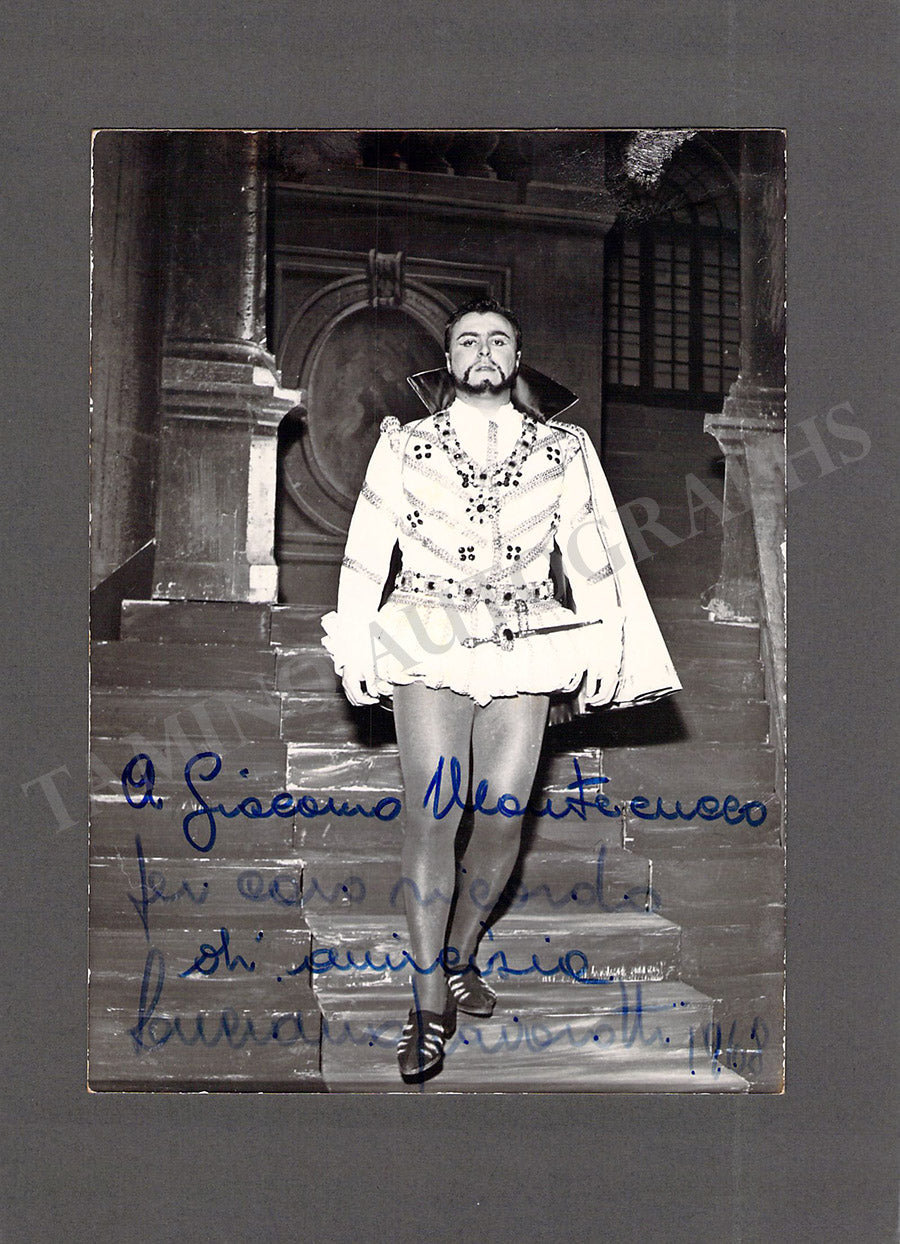 TAMINO AUTOGRAPHS
A Giacomo Montecucco
per caro ricordo
di amicizia
Luciano Pavarotti 1968